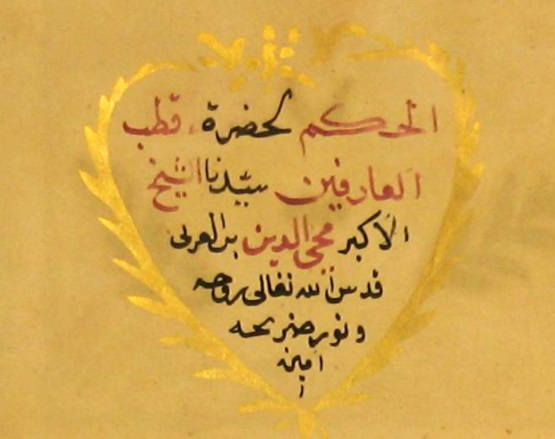 الحكم لحضرة قطب
العارفين سيدنا الشيخ
الاكبر محي الدين بن العربى
قدس الله تعالى روحه
ونور ضريحه
امين